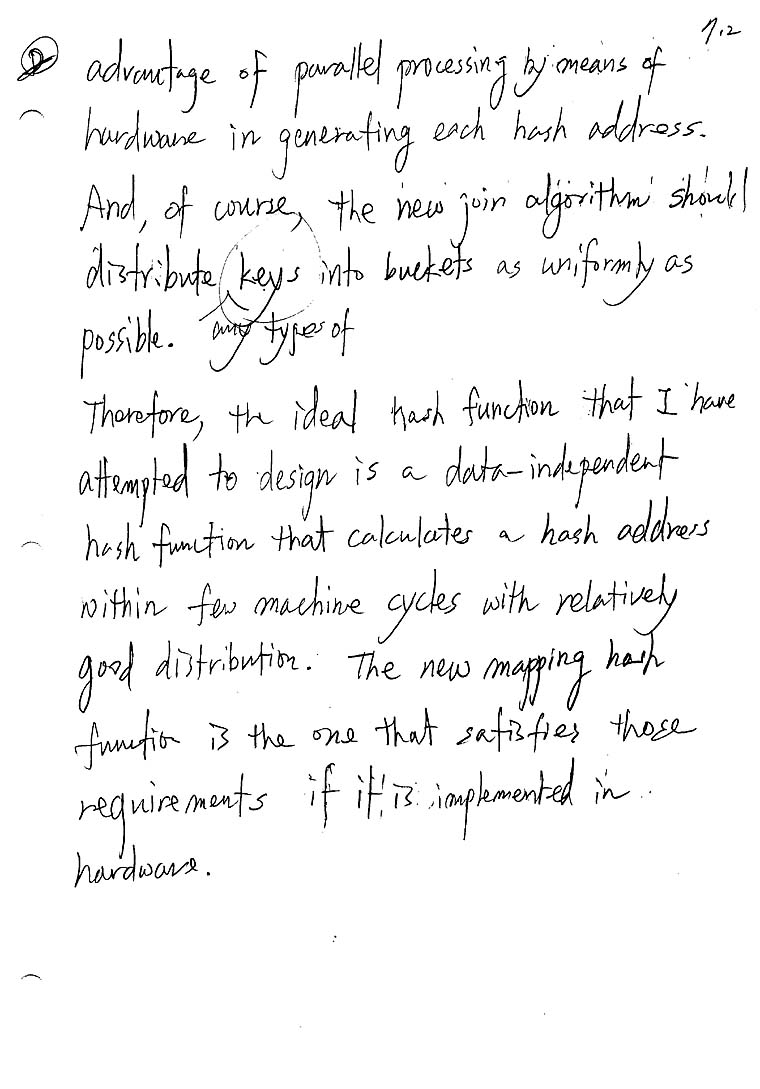 7.2
② advantage of parallel processing by means of
hardware in generating each hash address.
And, of course, the new join algorithm should
distribute keys into buckets as uniformly as
possible. any types of
Therefore, the ideal hash function that I have
attempted to design is a data-independent
hash function that calculates a hash address
within few machine cycles with relatively
good distribution. The new mapping hash
function is the one that satisfies those
requirements if it is implemented in
hardware.